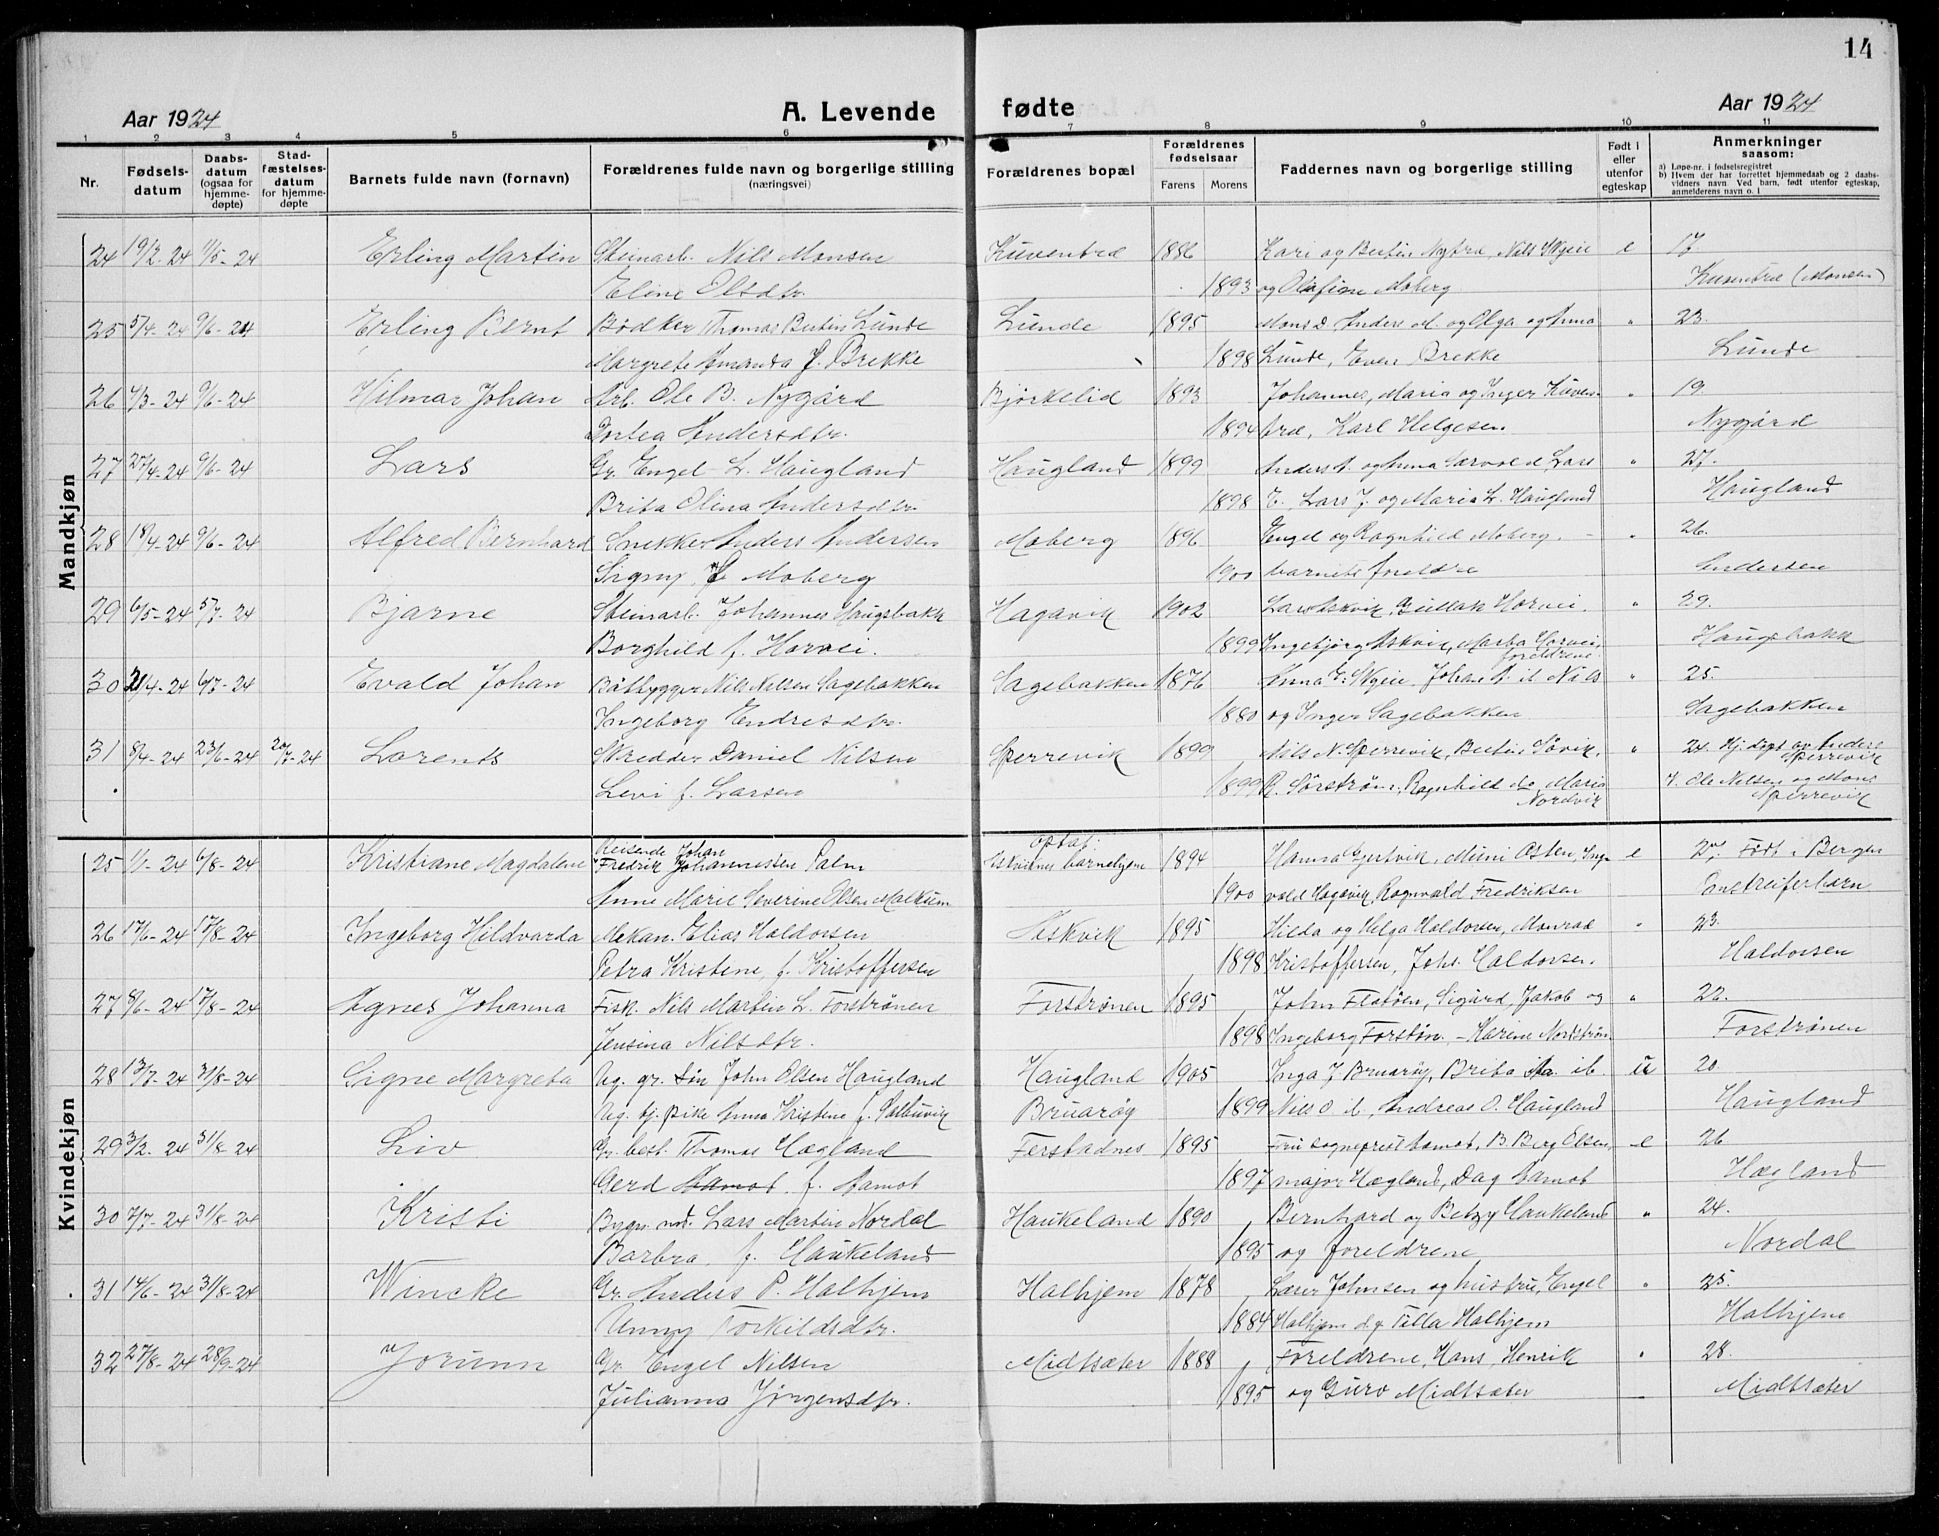 14
Aar 1924 A. Levende fødte Aar 1924
1 2 3 4 5 6 7 8 9 10 11
Nr. Fødsels-datum Daabs-datum (ogsaa for hjemme-døpte) Stad-fæstelses-datum for hjemme-døpte Barnets fulde navn (fornavn) Forældrenes fulde navn og borgerlige stilling (næringsvei) Forældrenes bopæl Forældrenes fødselsaar Farens Morens Faddernes navn og borgerlige stilling Født i eller utenfor egteskap Anmerkninger saasom:
a) Løpe-nr. i fødselsregistret
b) Hvem der har forrettet hjemmedaab og 2 daabs-vidners navn. Ved barn, født utenfor egteskap, anmelderens navn o. l
Mandkjøn
24 19/2-24 11/5-24 Erling Martin Steinarb. Nils Monsen Kuventræ 1886 Kari og Bertin Nytræ, Nils Skjeie e 17
Eline Elsdtr. 1893 og Olufine Moberg Kuventræ (Monsen)
25 5/4-24 9/6-24 Erling Bernt Bødker Thomas Bertin Lunde Lunde 1895 Mons D. Anders M. og Olga og Anna " 23.
Margrete Amanda f. Brekke 1898 Lunde, Even Brekke Lunde
26 4/3-24 9/6-24 Hilmar Johan Arb. Ole B. Nygård Bjørkelid 1893 Johannes, Maria og Inger Kuven- " 19.
Dortea Andersdtr. 1894 træ, Karl Helgesen Nygård
27 27/4-24 9/6-24 Lars Gr. Engel L. Haugland Haugland 1899 Anders A. og Anna Særvold, Lars " 27.
Brita Olina Andersdtr. 1898 E., Lars J. og Maria L. Haugland Haugland
28 18/4-24 9/6-24 Alfred Bernhard Snekker Anders Andersen Moberg 1896 Engel og Ragnhild Moberg. - " 26.
Signy f. Moberg 1900 barnets foreldre Andersen
29 6/5-24 5/7-24 Bjarne Steinarb. Johannes Haugsbakk Hagavik 1902 Lars Askvik, Gullak Horvei. " 29.
Borghild f. Horvei. 1899 Ingebjørg Askvik, Marta Horvei, foreldrene. Haugsbakk
30 21/4-24 6/7-24 Evald Johan Båtbygger Nils Nilsen Sagebakken Sagebakken 1876 Anna E. Skjeie, Johan A. ib Nils " 25.
Ingeborg Endresdtr. 1880 og Inger Sagebakken Sagebakken
31 8/4-24 23/6-24 20/7-24 Lorents Skredder Daniel Nilsen Sperrevik 1899 Nils N. Sperrevik, Bertin Søvik, " 24. Hj. døpt av Anders Sperrevik
Levi f. Larsen 1899 R. Sørstrøm, Ragnhild do, Maria Nordvik V. Ole Nilsen og Mons Sperrevik
Kvindekjøn
25 1/1-24 6/8-24 Kristiane Magdalene Reisende Johan Fredrik Johannessen Palm optat: Askviknes barnehjem 1894 Hanna Gjertvik, Mimi Osten, Ing- e 27. Født i Bergen
Anne Marie Severine Olsen Malkum 1900 vald Hagavik, Ragnvald Fredriksen Omstreiferbarn
26 17/6-24 17/8-24 Ingeborg Hildvarda Mekan. Elias Haldorsen Askvik 1895 Hilda og Helga Haldorsen, Monrad " 23.
Petra Kristene, f. Kristoffersen 1898 Kristoffersen, Johs. Haldorsen. Haldorsen
27 8/6-24 17/8-24 Agnes Johanna Fisk. Nils Martin L. Forstrønen Forstrønen 1895 John Flatøen, Sigurd, Jakob og " 22.
Jensina Nilsdtr. 1898 Ingeborg Forstrøn. - Karine Nordstrøm Forstrønen
28 13/7-24 31/8-24 Signe Margreta Ug. gr. søn John Elsen Haugland Haugland 1905 Inga J. Bruarøy, Brita Aa. ib. u 20.
Ug. tj. pike Anna Kristine f. Salbuvik Bruarøy 1899 Nils O. ib, Andreas O. Haugland Haugland
29 3/2-24 31/8-24 Liv Gr. best. Thomas Hægland Ferstadnes 1895 Fru sogneprest Aamot, B. Berg Olsen, e 26
Gerd Aamot f. Aamot 1897 major Hægland, Dag Aamot Hægland
30 7/7-24 31/8-24 Kristi Bygn. Lars Martin Nordal Haukeland 1890 Bernhard og Betzy Haukeland " 24.
Barbra, f. Haukeland 1895 og foreldrene Nordal
31 14/6-24 31/8-24 Wincke Gr. Anders P. Halhjem Halhjem 1878 Lars Johnsen og hustru, Engel " 25.
Anny Torkildsdtr. 1884 Halhjem og Tilla Halhjem Halhjem
32 27/8-24 28/9-24 Jorunn Gr. Engel Nilsen Midtsæter 1888 Foreldrene, Hans, Henrik " 28.
Julianna Jørgensdtr. 1895 og Guro Midtsæter Midtsæter